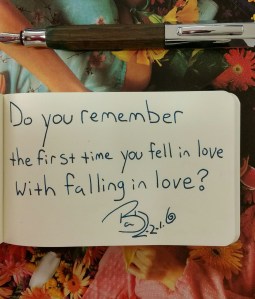 Do you remember
the first time you fell in love
with falling in love?